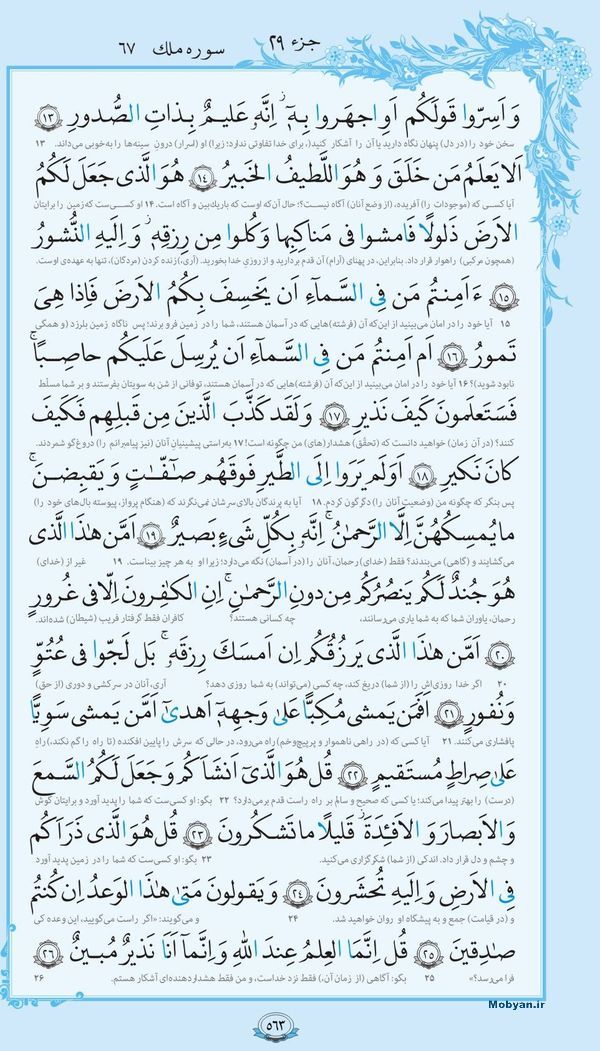 جزء ۲۹
سوره ملک ۶۷
وَ اَسِرّوا قَولَكُم اَوِ اجهَروا بِهٓ ۖ اِنَّهٗ عَليمٌ بِذاتِ الصُّدورِ ﴿۱۳﴾
سخن خود را (در دل) پنهان نگاه دارید یا آن را آشکار کنید(، برای خدا تفاوتی ندارد؛ زیرا) او (اسرار) درون سینه‌ها را به‌خوبی می‌داند. ۱۳
اَلا يَعلَمُ مَن خَلَقَ وَ هُوَ اللَّطيفُ الخَبيرُ ﴿۱۴﴾ هُوَ الَّذى جَعَلَ لَكُمُ
آیا کسی که (موجودات را) آفریده، (از وضع آنان) آگاه نیست؟! حال آن‌که اوست که باریک‌بین و آگاه است. ۱۴ او کسی‌ست که زمین را برایتان
الاَرضَ ذَلولًا فَامشوا فى مَناكِبِها وَ كُلوا مِن رِزقِهٖ ۖ وَ اِلَيهِ النُّشورُ
(همچون مرکبی) راهوار قرار داد. بنابراین، در پهنای (آرام) آن قدم بردارید و از روزیِ خدا بخورید. (آری،) زنده کردن (مردگان)، تنها به عهده‌ی اوست.
﴿۱۵﴾ ءَاَمِنتُم مَن فِى السَّمآءِ اَن يَخسِفَ بِكُمُ الاَرضَ فَاِذا هِىَ
۱۵ آیا خود را در امان می‌بینید از این‌که آن (فرشته)هایی که در آسمان هستند، شما را در زمین فرو برند؛ پس ناگاه زمین بلرزد (و همگی
تَمورُ ﴿۱۶﴾ اَم اَمِنتُم مَن فِى السَّمآءِ اَن يُرسِلَ عَلَيكُم حاصِبًا ۖ
نابود شوید)؟ ۱۶ آیا خود را در امان می‌بینید از این‌که آن (فرشته)هایی که در آسمان هستند، توفانی از شن به سویتان بفرستند و بر شما مسلّط
فَسَتَعلَمونَ كَيفَ نَذيرِ ﴿۱۷﴾ وَ لَقَد كَذَّبَ الَّذينَ مِن قَبلِهِم فَكَيفَ
کنند؟ (در آن زمان) خواهید دانست که (تحقّق) هشدار(های) من چگونه است! ۱۷ به‌راستی پیشینیانِ آنان (نیز پیامبرانم را) دروغ‌گو شمردند.
كانَ نَكيرِ ﴿۱۸﴾ اَوَلَم يَرَوا اِلَى الطَّيرِ فَوقَهُم صآفّاتٍ وَ يَقبِضنَ ۚ
پس بنگر که چگونه من (وضعیت آنان را) دگرگون کردم. ۱۸ آیا به پرندگان بالای سرشان نمی‌نگرند که (هنگام پرواز، پیوسته بال‌های خود را)
ما يُمسِكُهُنَّ اِلَّا الرَّحمٰنُ ۚ اِنَّهٗ بِكُلِّ شَىءٍ بَصيرٌ ﴿۱۹﴾ اَمَّن هٰذَا الَّذى
می‌گشایند و (گاهی) می‌بندند؟ فقط (خدای) رحمان، آنان را (در آسمان) نگه می‌دارد؛ زیرا او به هر چیز بیناست. ۱۹ غیر از (خدای)
هُوَ جُندٌ لَكُم يَنصُرُكُم مِن دونِ الرَّحمٰنِ ۚ اِنِ الكافِرونَ اِلّا فى غُرورٍ
رحمان، یاوران شما که به شما یاری می‌رسانند، چه کسانی هستند؟ کافران فقط گرفتار فریب (شیطان) شده‌اند.
﴿۲۰﴾ اَمَّن هٰذَا الَّذى يَرزُقُكُم اِن اَمسَكَ رِزقَهٗ ۚ بَل لَجّوا فى عُتُوٍّ
۲۰ اگر خدا روزی‌اش را (از شما) دریغ کند، چه کسی (می‌تواند) به شما روزی دهد؟ آری، آنان در سرکشی و دوری (از حق)
وَ نُفورٍ ﴿۲۱﴾ اَفَمَن يَمشى مُكِبًّا عَلىٰ وَجهِهٖٓ اَهدىٰٓ اَمَّن يَمشى سَوِيًّا
پافشاری می‌کنند. ۲۱ آیا کسی که (در راهی ناهموار و پرپیچ‌وخم) راه می‌رود، در حالی که سرش را پایین افکنده (تا راه را گم نکند)، راهِ
عَلىٰ صِراطٍ مُستَقيمٍ ﴿۲۲﴾ قُل هُوَ الَّذىٓ اَنشَاَكُم وَ جَعَلَ لَكُمُ السَّمعَ
(درست) را بهتر پیدا می‌کند؛ یا کسی که صحیح و سالم بر راه راست قدم برمی‌دارد؟ ۲۲ بگو: او کسی‌ست که شما را پدید آورد و برایتان گوش
وَ الاَبصارَ وَ الاَفئِدَةَ ۖ قَليلًا ما تَشكُرونَ ﴿۲۳﴾ قُل هُوَ الَّذى ذَرَاَكُم
و چشم و دل قرار داد. اندکی (از شما) شکرگزاری می‌کنید. ۲۳ بگو: او کسی‌ست که شما را در زمین پدید آورد
فِى الاَرضِ وَ اِلَيهِ تُحشَرونَ ﴿۲۴﴾ وَ يَقولونَ مَتىٰ هٰذَا الوَعدُ اِن كُنتُم
و (در قیامت) جمع و به پیشگاه او روان خواهید شد. ۲۴ و می‌گویند: «اگر راست می‌گویید، این وعده کی
صادِقينَ ﴿۲۵﴾ قُل اِنَّمَا العِلمُ عِندَ اللّٰهِ وَ اِنَّمآ اَنَا نَذيرٌ مُبينٌ ﴿۲۶﴾
فرا می‌رسد؟» ۲۵ بگو: آگاهی (از زمان آن،) فقط نزد خداست، و من فقط هشداردهنده‌ای آشکار هستم. ۲۶
Mobyan.ir
۵۶۳